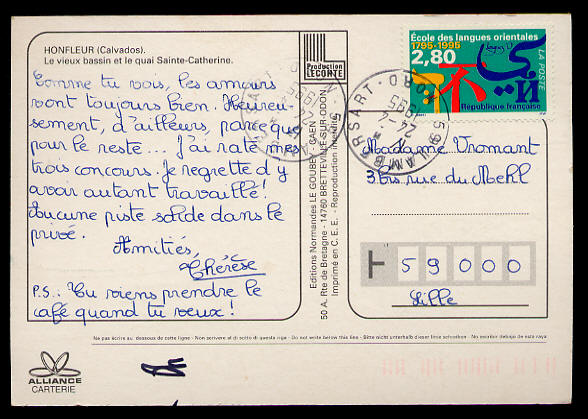 HONFLEUR (Calvados).
Le vieux bassin et le quai Sainte-Catherine.
Comme tu vois, les amours
vont toujours bien. Heureu-
sement, d'ailleurs, parce que
pour le reste... J'ai raté mes
trois concours. Je regrette d'y
avoir autant travaillé!
Aucune piste solide dans le
privé.
Amitiés,
Thérèse
P.S.: Tu viens prendre le
café quand tu veux!
Production
LECONTE
Editions Normandes LE GOUBEY - CAEN
50 A, Rte de Bretagne - 14760 BRETTEVILLE-SUR-ODON
Imprimé en C.E.E. - Reproduction interdite
École des langues orientales
1795-1995
2,80
LA POSTE
République française
59 LAMBERSART
24-7
1995
NORD
Madame Vromant
3 bis rue du Mehl
59000
Lille
Ne pas écrire au dessous de cette ligne - Non scrivere al di sotto di questa riga - Do not write below this line - Bitte nicht unterhalb dieser linie schreiben - No escribir debajo de esta raya
ALLIANCE
CARTERIE